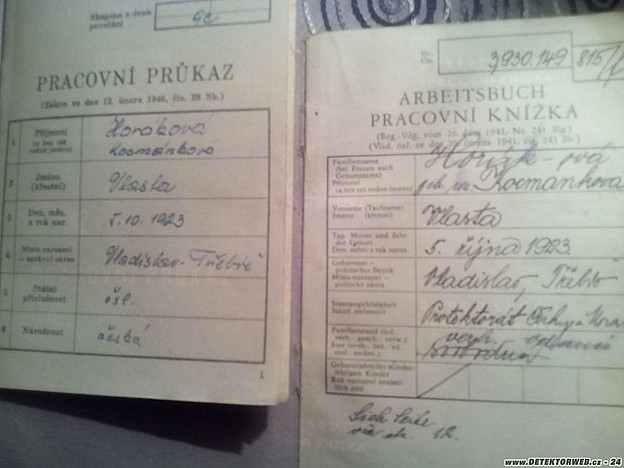 Skupina a druh
povolání
9c
PRACOVNÍ PRŮKAZ
(Zákon ze dne 12. února 1946, čís. 29 Sb.)
1 Příjmení
(u žen též
rodné jméno)
Horáková
Kocmánková
2 Jméno
(křestní)
Vlasta
3 Den, měs.
a rok nar.
5. 10. 1923
4 Místo narození
- správní okres
Vladislav - Třebíč
5 Státní
příslušnost
čsl.
6 Národnost
česká
1
Nr.
Čís.
3,930.149
815/
ARBEITSBUCH
PRACOVNÍ KNÍŽKA
(Reg.-Vdg. vom 26. 1941, Nr. 241 Slg.)
(Vlád. nař. ze dne 26. června 1941, čís. 241 Sb.)
Familienname
(bei Frauen auch
Geburtsname)
Příjmení
(u žen též rodné jméno)
Horák-ová
geb. Kocmánková
Vorname (Taufname)
Jméno (křestní)
Vlasta
Tag, Monat und Jahr
der Geburt
Den, měsíc a rok naroz.
5. října 1923.
Geburtsort -
politischer Bezirk
Místo narození -
politický okres
Vladislav, Třebíč
Staatsangehörigkeit
Státní občanství
Protektorát Čechy a Mora
Familienstand (led.
verh., gesch., verw.)
Stav (svob., žen., vd.
mal., rozlouč.)
verh.
svobodná
Geburtsjahre der minder-
jährigen Kinder
Rok narození nezleti-
lých dětí
Sieh Seite
viz str. 12.
www.DETEKTORWEB.cz - 24